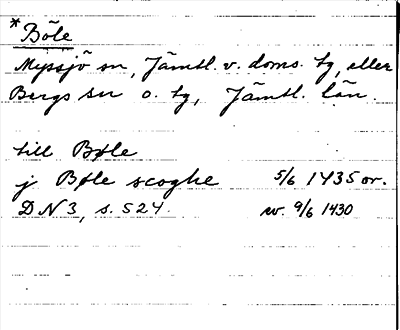 *Böle
Myssjö sn, Jämtl. v. doms. tg, eller
Bergs sn o. tg, Jämtl. län.
till Bøle
j Bøle scoghe 5/6 1435 or.
DN3, s. 524. w. 9/6 1430